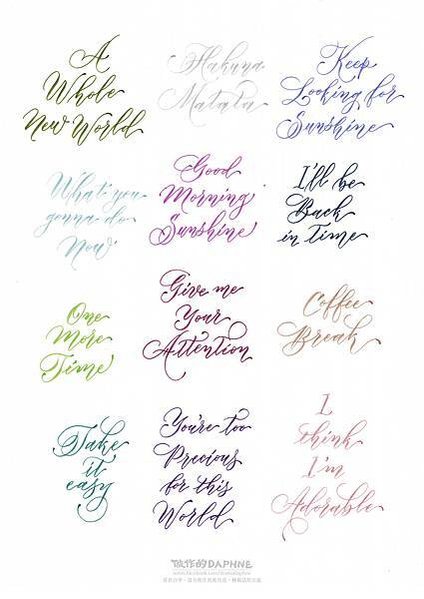 A
Whole
New World
Hakuna
Matata
Keep
Looking for
Sunshine
What you
gonna do
Now
Good
Morning
Sunshine
I'll be
Back
in Time
One
More
Time
Give me
Your
Attention
Coffee
Break
Take
it
easy
You're too
Precious
for this
World
I
think
I'm
Adorable
DAPHNE